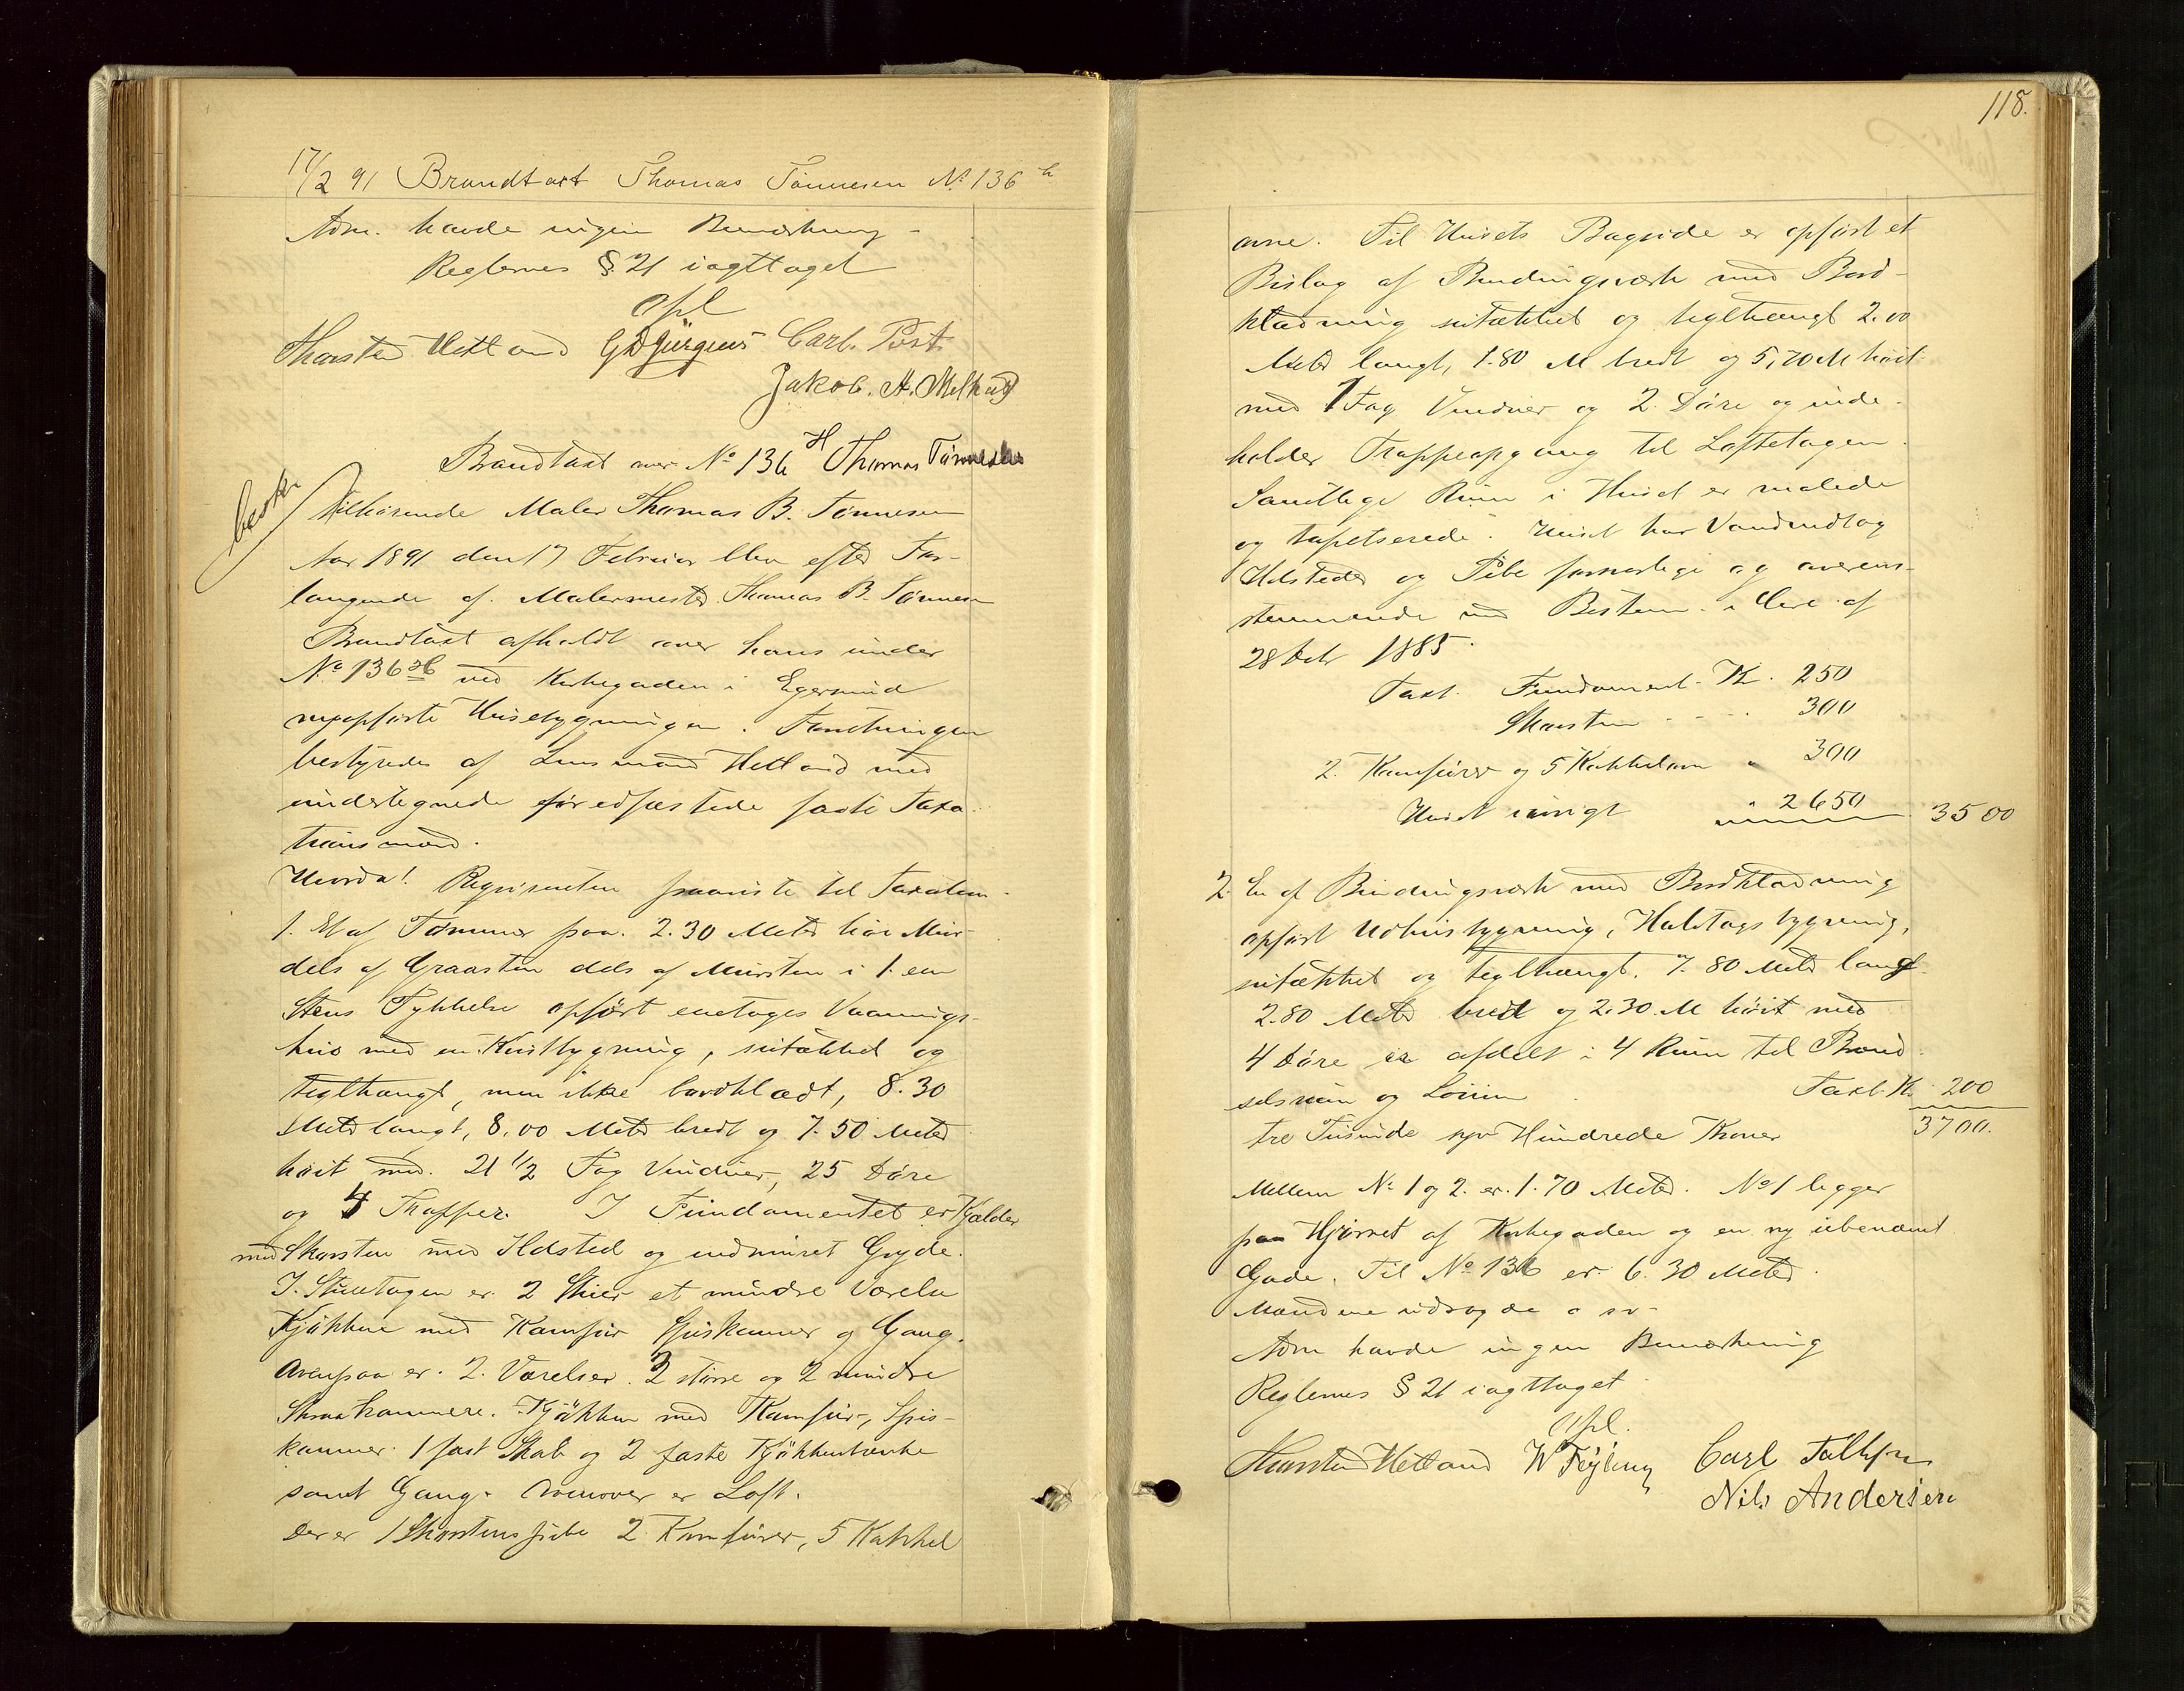 17/2 91 Brandtaxt Thomas Tønnesen No 136 h
Adm. havde ingen Bemærkning -
Reglernes § 21 iagttaget
opl
Thorsten Hetland G D Jürgens Carl. Post
Jakob. A. Melhus
Brandtaxt over No 136 H Thomas Tønnesen
tilhørende Maler Thomas B. Tønnesen
Aar 1891 den 17 Februar blev efter For-
langende af Malermester Thomas B. Tønnesen
Brandtaxt afholdt over hans under
No 136 H ved Kirkegaden i Egersund
nyopførte Husebygninger. Forretningen
bestyredes af Lensmand Hetland med
undertegnede før edfæstede faste Taxa-
tionsmænd.
Hvorda! Reqvirenten paaviste til Taxation
1. Et af Tømmer paa 2.30 Meter høi Mur
dels af Graasten dels af Mursten i 1. en
Stens Tykkelse opført enetages Vaanings-
hus med en Kvistbygning, sutækket og
teglhængt, men ikke bordklædt, 8.30
Meter langt, 8.00 Meter bredt og 7.50 Meter
høit med 21 1/2 Fag Vinduer, 25 Døre
og 4 Trapper. I Fundamentet er Kjælder
med Skorsten med Ildsted og indmuret Gryde.
I. Stueetagen er 2 Stuer et mindre Værelse
Kjøkken med Komfur Spiskammer og Gang.
Ovenpaa er 2. Værelser. 2 større og 2 mindre
Skraakammere. Kjøkken med Komfur, Spis-
kammer 1 fast Skab og 2 faste Kjøkkenbænke
samt Gang. Ovenover er Loft.
Der er 1 Skorstenspibe 2 Komfurer, 5 Kakkel
118.
ovne. Til Husets Bagside er opført et
Bislag af Bindingsværk med Bord-
klædning sutækket og teglhængt 2.00
Meter langt, 1.80 M bredt og 5,70 M høit
med 1 Fag Vinduer og 2 Døre og inde-
holder Trappeopgang til Loftetagen.
Samtlige Rum i Huset er malede
og tapetserede. Huset har Vandindlæg
Ildsteder og Pibe forsvarlige og overens-
stemmende med Bestem. i Circ. af
28 Debr 1885.
Taxt. Fundament Kr. 250
Skorsten - - - 300
2. Komfurer og 5 Kakkelovne " 300
Huset iøvrigt " 2650 3500
2. En af Bindingsværk med Bordklædning
opført Udhusbygning, Halvtagsbygning,
sutækket og teglhængt. 7.80 Meter lang
2.80 Meter bred og 2.30 M høit med
4 Døre er afdelt i 4 Rum til Brænd-
selsrum og
Taxt. Kr. 200
tre Tusinde syv Hundrede Kroner 3700.
Mellem No 1 og 2 er 1.70 Meter. No 1 ligger
paa Hjørnet af Kirkegaden og en ny ubenævnt
Gade. Til No 136 er 6.30 Meter.
Mændene
Adm havde ingen Bemærkning
Reglernes § 21 iagttaget
opl.
Thorsten Hetland W Feyling Carl
Nils Andersen